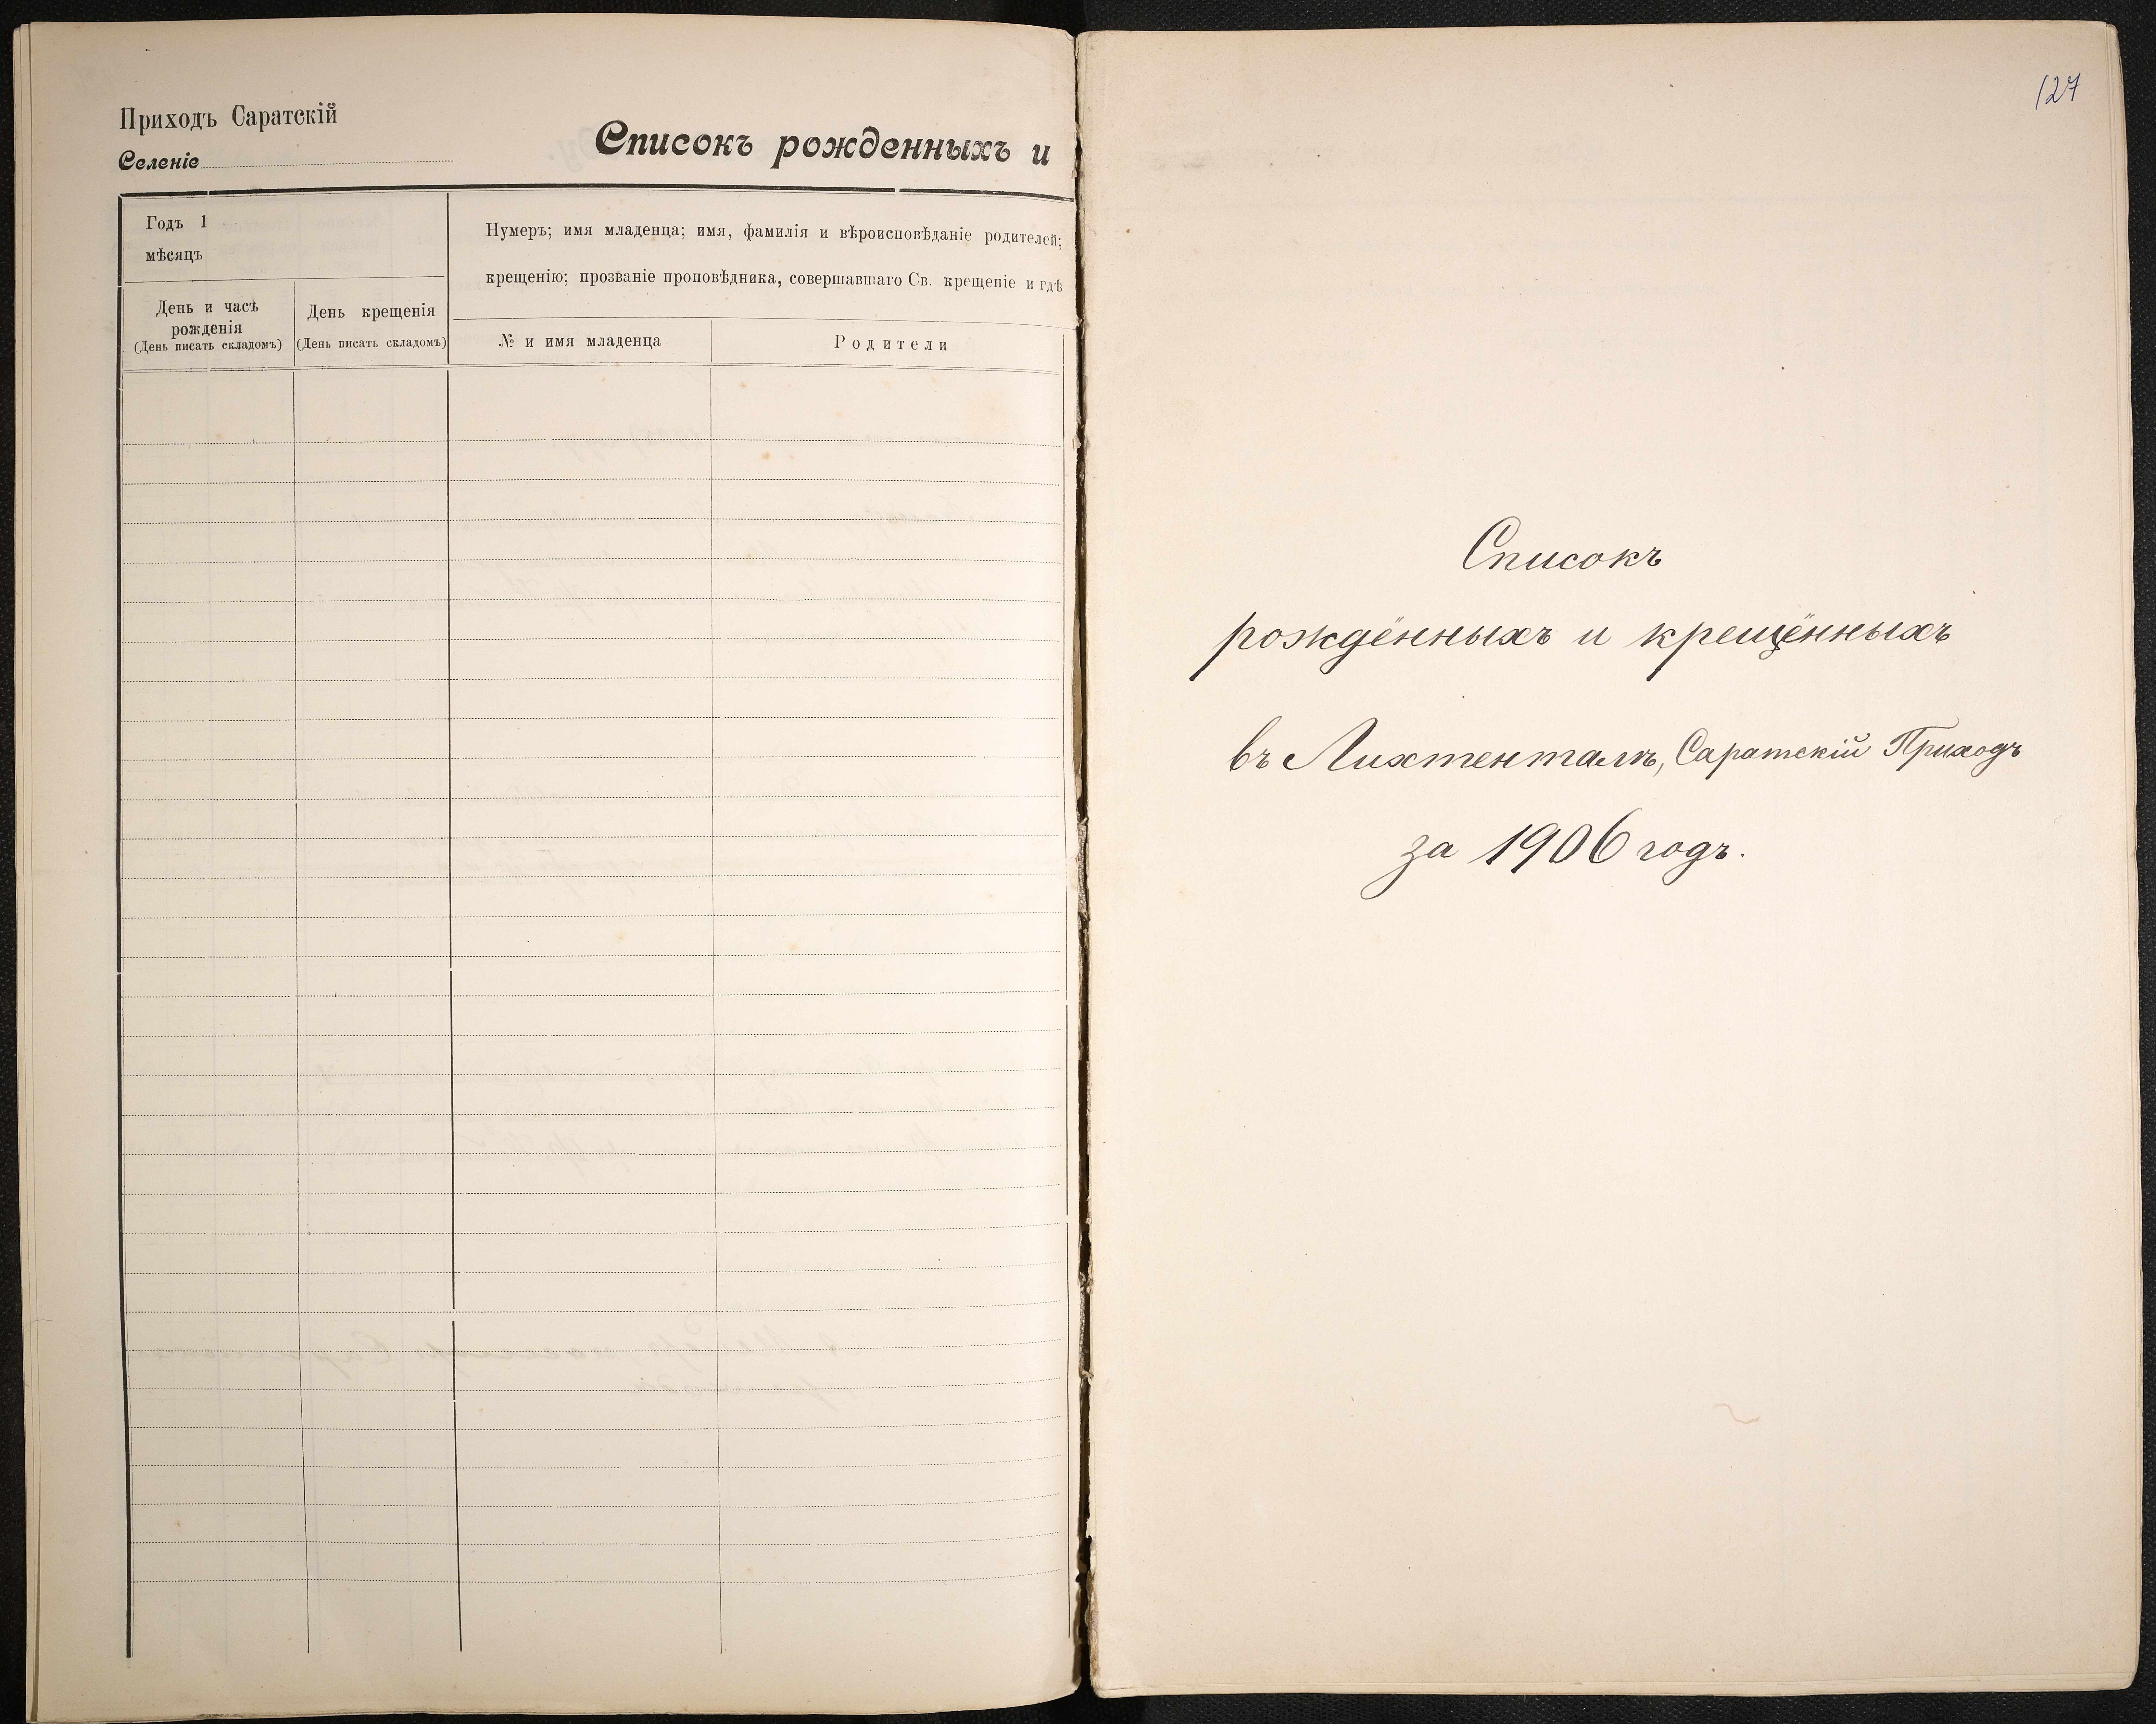 Приходъ Саратскій
Селеніе
Списокъ рожденныхъ и
Годъ 1
мѣсяцъ
Нумеръ; имя младенца; имя, фамилія и вѣроисповѣданіе родителей;
крещенію; прозваніе проповѣдника, совершавшаго Св. крещеніе и гдѣ
День и часъ
рожденія
(День писать складомъ)
День крещенія
(День писать складомъ)
№ и имя младенца
Родители
127
Списокъ
рождённыхъ и крещённыхъ
въ Лихтенталѣ, Саратскій Приходъ
за 1906 годъ.